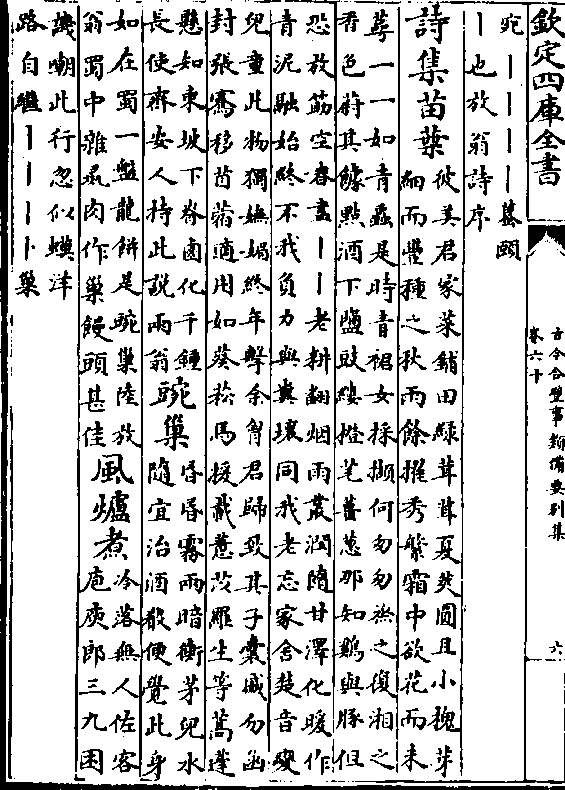 欽定四庫全書
古今合璧事類備要別集
卷六十
六
宛丨丨丨丨蟇頤
丨也放翁詩序
詩集苗葉
彼美君家菜鋪田綠茸茸豆莢圓且小槐芽
細而豐種之秋雨餘擢秀繁霜中欲花而未
萼一一如青蟲是時青裙女採擷何匆匆烝之復湘之
香色蔚其饛點酒下鹽豉縷橙芼薑葱那知鷄與豚但
恐放筯空春盡丨丨老耕翻烟雨叢潤隨甘澤化暖作
青泥融始終不我負力與糞壤同我老忘家舍楚音變
兒童此物獨嫵媚終年繫余胷君歸致其子囊盛勿函
封張騫移苜蓿適用如葵菘馬援載薏苡羅生等蒿蓬
懸知東坡下脊鹵化千鍾
長使齊安人持此說兩翁
豌巢
昏昏霧雨暗衡茅兒水
隨宜治酒殽便覺此身
如在蜀一盤龍餅是豌巢陸放
翁蜀中雜彘肉作巢饅頭甚佳
風爐煮
冷落無人佐客
庖庾郎三九困
譏嘲此行忽似蟆津
路自繼丨丨丨丨卜巢